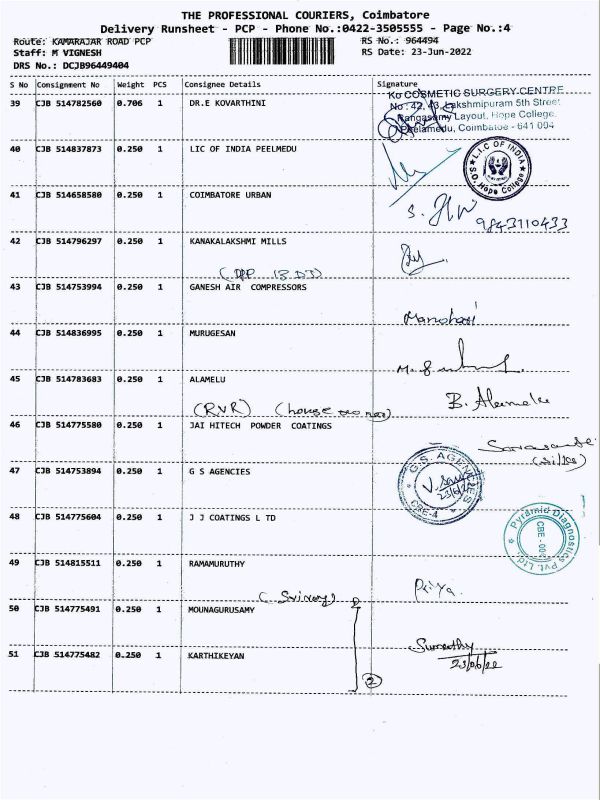 THE PROFESSIONAL COURIERS, Coimbatore
Delivery Runsheet - PCP - Phone No.:0422-3505555 - Page No.:4
Route: KAMARAJAR ROAD PCP RS No.: 964494
Staff: M VIGNESH RS Date: 23-Jun-2022
DRS No.: DCJB96449404
S No Consignment No Weight PCS Consignee Details Signature
39 CJB 514782560 0.706 1 DR.E KOVARTHINI
Ko COSMETIC SURGERY CENTRE
No: 42, 43, Lakshmipuram 5th Street
Rangasamy Layout, Hope College,
Peelamedu, Coimbatoe - 641 004
40 CJB 514837873 0.250 1 LIC OF INDIA PEELMEDU
L.I.C OF INDIA
S.O. Hope College
41 CJB 514658580 0.250 1 COIMBATORE URBAN
9843110433
42 CJB 514796297 0.250 1 KANAKALAKSHMI MILLS
43 CJB 514753994 0.250 1 GANESH AIR COMPRESSORS
44 CJB 514836995 0.250 1 MURUGESAN
45 CJB 514783683 0.250 1 ALAMELU
(RVR)
46 CJB 514775580 0.250 1 JAI HITECH POWDER COATINGS
47 CJB 514753894 0.250 1 G S AGENCIES
G.S. AGENCIES
CBE-4
48 CJB 514775604 0.250 1 J J COATINGS L TD
Pyramid Diagnostics Pvt. Ltd.
49 CJB 514815511 0.250 1 RAMAMURUTHY
Priya.
50 CJB 514775491 0.250 1 MOUNAGURUSAMY
51 CJB 514775482 0.250 1 KARTHIKEYAN
Sumathy
23/06/22
2